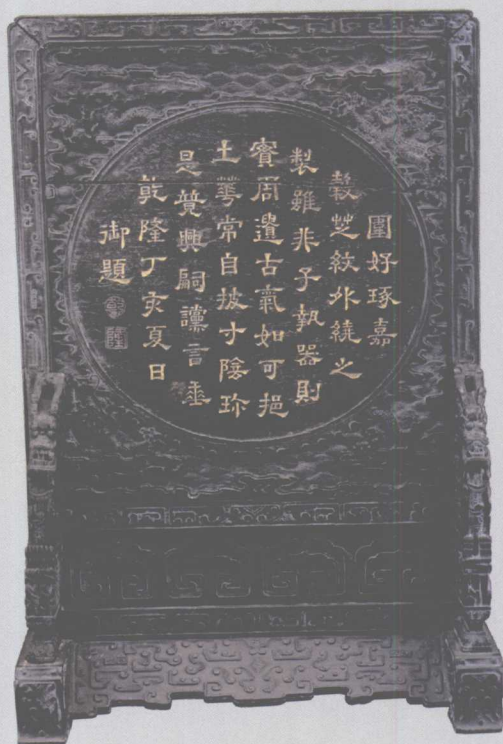 圍好琢嘉
穀芝紋外繞之
製雖非子執器則
實周遺古氣如可挹
土華常自披寸陰珎
是競興嗣讜言垂
乾隆丁亥夏日
御題